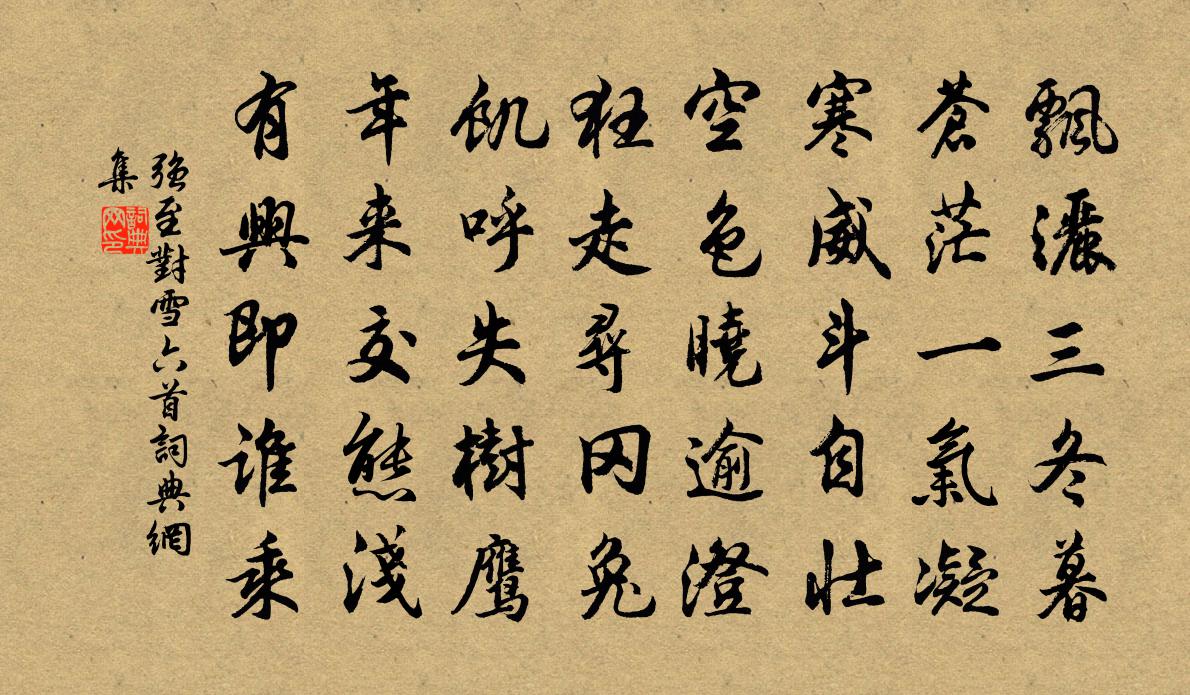 飄灑三冬暮
蒼茫一氣凝
寒威斗自壯
空色曉逾澄
狂走尋罔兔
飢呼失樹鷹
年来交態淺
有興即誰乘
強至對雪六首詞典網
集
詞典网印